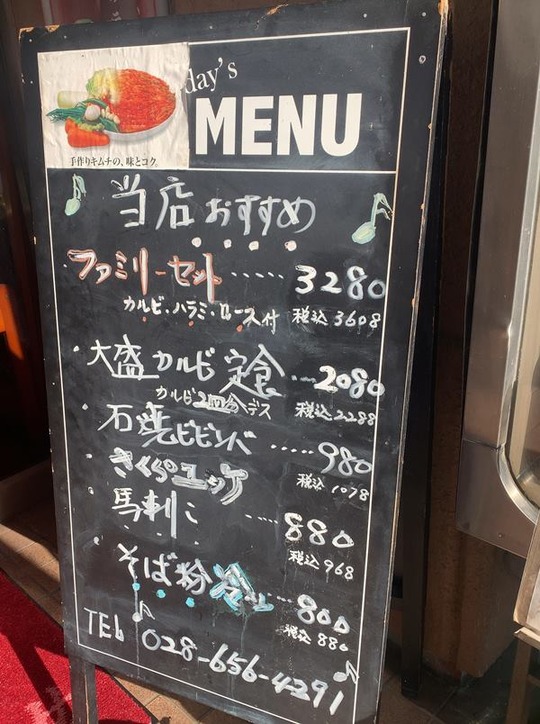 day's
MENU
手作りキムチの、味とコク
当店おすすめ
ファミリーセット……3280
カルビ・ハラミ・ロース付 税込3608
大盛カルビ定食…2080
カルビ2皿分デス 税込2288
石焼ビビンバ……980
税込1078
さくらユッケ
馬刺し……880
税込968
そば粉冷…800
税込880
TEL 028-656-4291